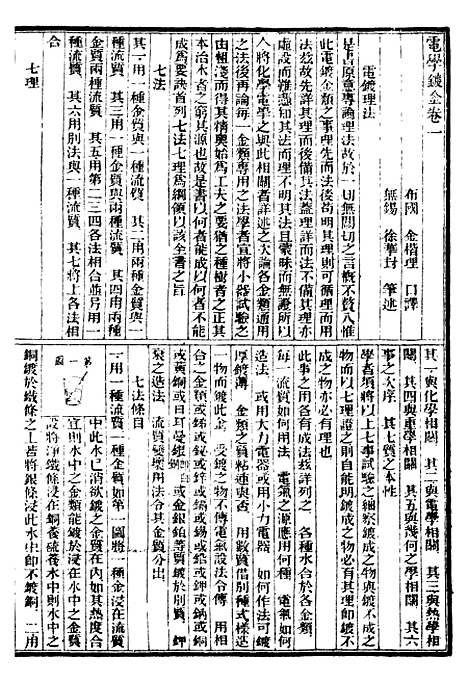 電學鍍金卷一
布國 金楷理 口譯
無錫 徐華封 筆述
電鍍理法
是書原意專論理法故於一切無關切之言概不贅入惟
此電鍍金類之事理先而法後苟明其理則可循理而用
法茲故先詳其理而後備其法蓋理詳而法不備其理亦
虛設而難憑知其法而理不明其法且蒙昧而無證所以
人將化學電學之與此相關者詳述之次論各金類通用
之法後再論每一金類專用之法學者宜將小器試驗之
由粗淺而得其精奧始為工大之要猶之種樹者之正其
本治水者之窮其源也故是書以何者能成以何者不能
成為要訣首列七法七理為綱領以該全書之旨
七法
其一用一種金質與一種流質 其二用兩種金質與一
種流質 其三用一種金質與兩種流質 其四用兩種
金質兩種流質 其五用第一二三四各法相合並另用一
種流質 其六用別法與一種流質 其七將上各法相
合
七理
其一與化學相關 其二與電學相關 其三與熱學相
關 其四與重學相關 其五與幾何之學相關 其六
事之次序 其七質之本性
學者須將以上七事試驗之細察鍍成之物與鍍不成之
物而以七理證之則自能明鍍成之物必有其理卽鍍不
成之物亦必有理也
此事之用各有成法茲詳列之 各種水合於各金類
每一流質如何用法 電氣之源應用何種 電氣如何
造法 或用大力電器或用小力電器 如何作法可鍍
厚鍍薄 金類之質粘連與否 用數質借別種式樣造
一物而鍍此金 受鍍之物不傳電氣設法令傳 用相
合之金類或銻或鉍或鋅或鎘或錫或鉛或鉀或鈉或銅
或黃銅或日耳曼銀卽白銅或金銀鉑等質鍍於別質 鉀
衰之造法 流質變壞用法令其金質分出
七法條目
一用一種流質一種金質如第一圖將一種金浸在流質
第一圖
中此水已消欲鍍之金質在內如其熱度合
宜則水中之金類能鍍於浸在水中之金質
設將淨鐵條浸在銅養硫養水中則水中之
銅鍍於鐵條之上若將銀條浸此水中卽不鍍銅 二用